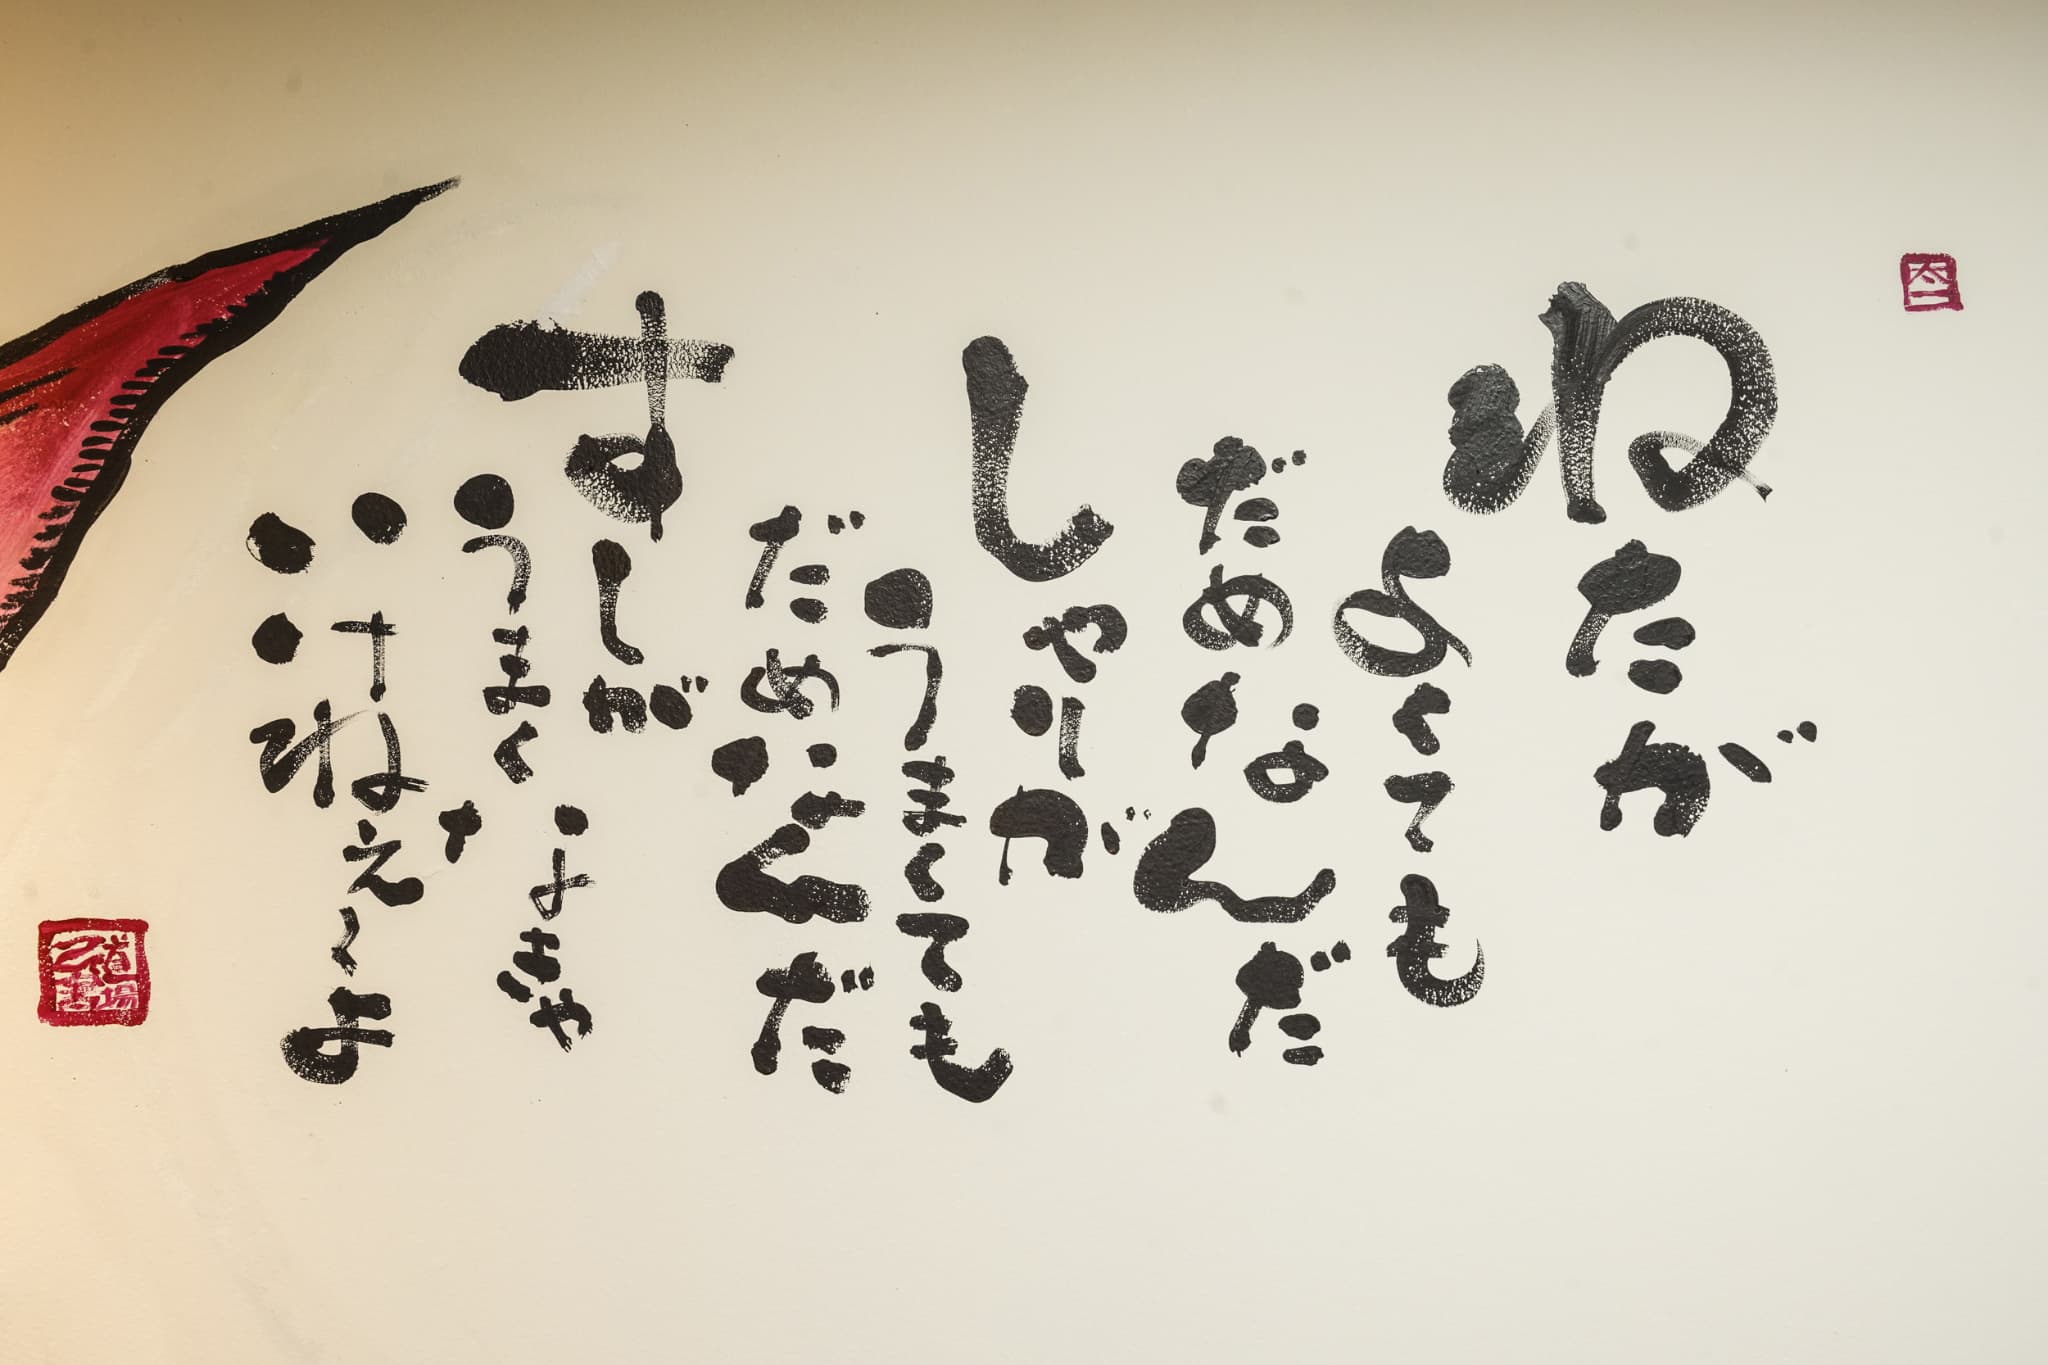 ねたが
よくても
だめなんだ
しゃりが
うまくても
だめなんだ
すしが
うまくなきゃ
いけねえ〜よ
道場